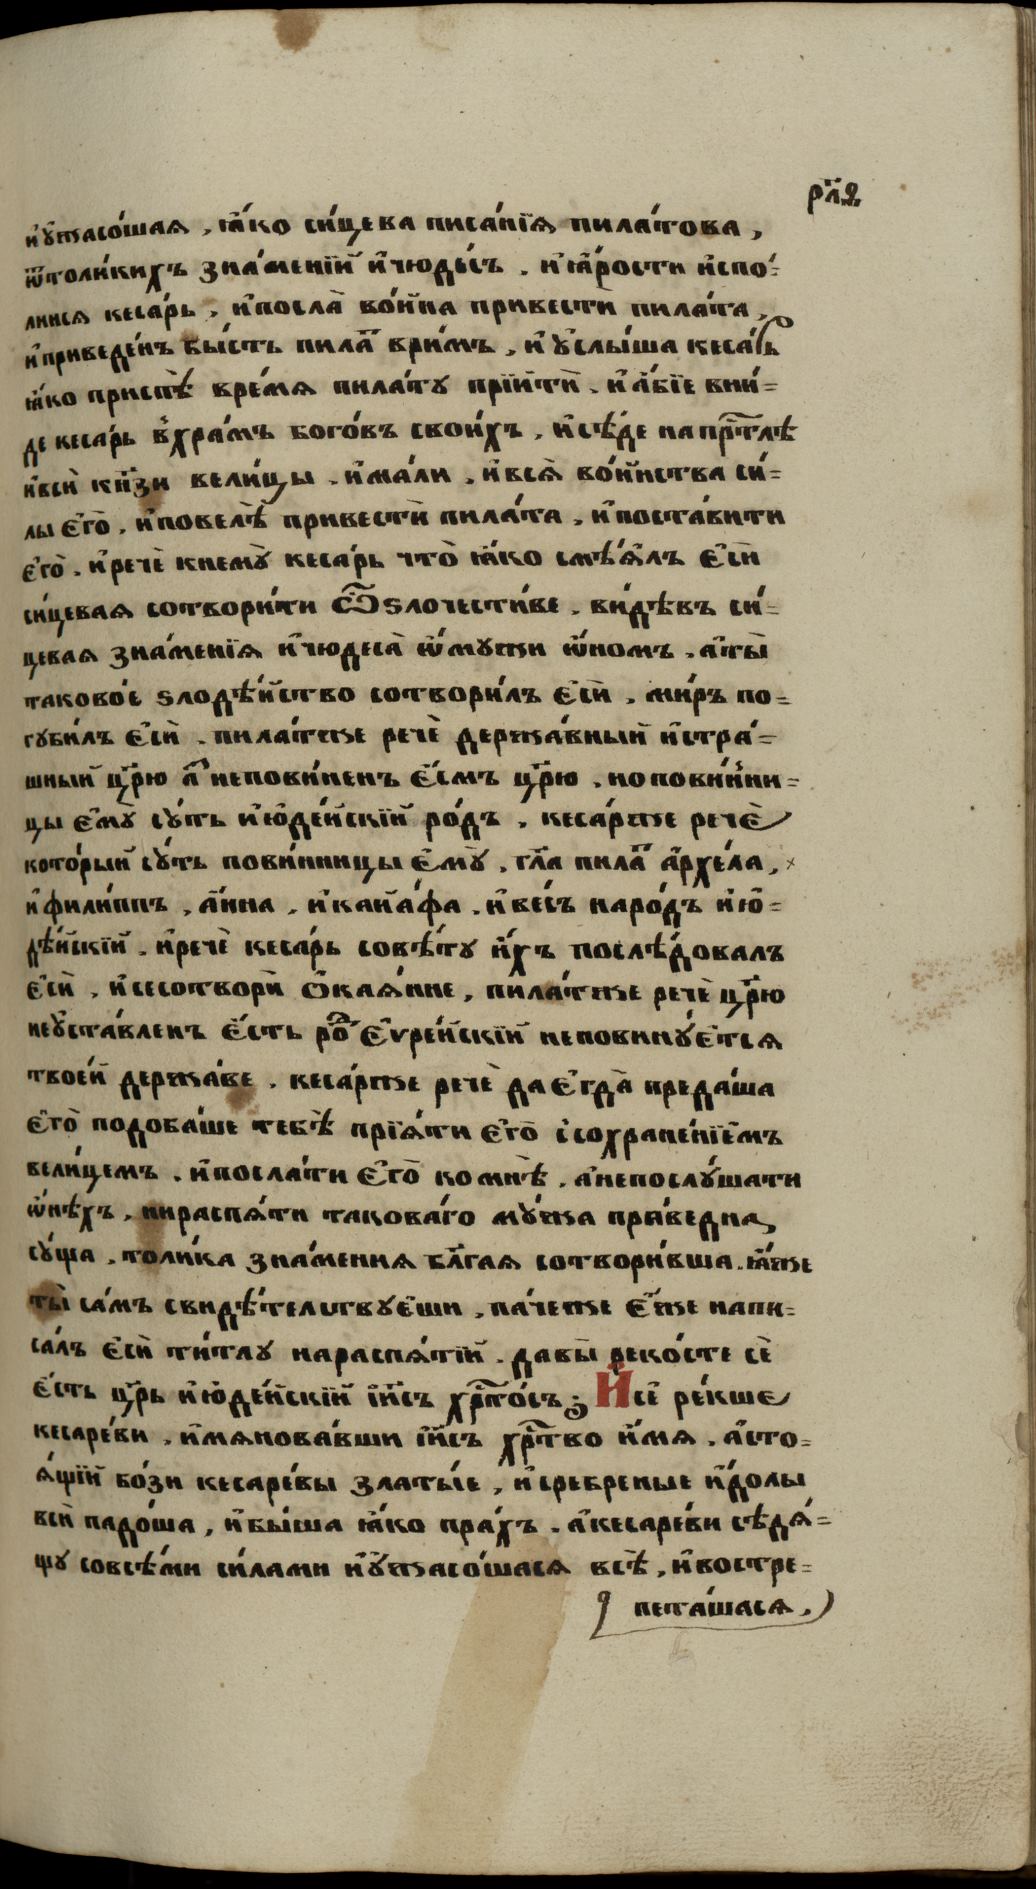 рл҃з
и҆ᲂу҆жасо́шая, ꙗ҆́ко си́цева писа́нїѧ пила́това,
ѿтоли́кихъ зна́менїй и҆чюде́съ. и҆ꙗ҆́рости и҆спо́-
лнисѧ кеса́рь, и҆посла̀ во́йна привестѝ пила́та,
и҆приведе́нъ бы́сть пила́т ври́мъ, и҆ ᲂу҆слы́ша кеса́рь
ꙗ҆́ко приспѣ̀ вре́мѧ пила́ту прїйтѝ. и҆ а҆́бїе вни́-
де кеса́рь в хра́мъ бого́въ свои́хъ, и҆сѣ́де напрⷭ҇тлѣ
и҆всѝ кн҃зи вели́цы. и҆ма́ли. и҆всѧ̀ во́йнства си́-
лы є҆гѡ̀. и҆повелѣ̀ привестѝ пила́та, и҆поста́вити
є҆го̀. и҆речѐ кнемꙋ̀ кеса́рь что̀ ꙗ҆́ко смѣ́ѧлъ є҆сѝ
си́цевая сотвори́ти ѽ ѕлочести́ве. ви́дѣвъ си́-
цевая зна́менїя и҆чюдеса̀ ѡ҆́мужи ѡ҆́номъ. а҆ты̀
таково́е ѕлодѣ́йство сотвори́лъ є҆сѝ. ми́ръ по-
губи́лъ є҆сѝ. пила́тже речѐ держа́вный и҆стра́-
шный цр҃ю а҆́зъ непови́ненъ є҆́смъ цр҃ю. но пови́нни-
цы є҆мꙋ̀ сꙋ́ть и҆юде́йскїй ро́дъ. кеса́рже речѐ
кото́рый сꙋ́ть пови́нницы є҆мꙋ̀. гл҃а пила́т а҆рхе́ла,
и҆ фили́ппъ, а҆́нна, и҆ кайа́фа. и҆ ве́съ наро́дъ и҆ю-
дѣ́йскїй. и҆речѐ кеса́рь совѣ́ту и҆́хъ послѣ́довалъ
є҆сѝ. и҆сесотворѝ ѻ҆кая́нне, пила́тже речѐ цр҃ю
неᲂу҆ста́вленъ є҆́сть ро́д є҆ѵре́йскїй неповинꙋ́єтсѧ
твое́й держа́ве. кеса́рже речѐ да є҆гда̀ преда́ша
є҆го̀ подоба́ше тебѣ̀ прїѧ́ти є҆го̀ с сохране́нїемъ
вели́цемъ. и҆посла́ти є҆го̀ ко мнѣ̀. а҆непослꙋ́шати
ѡ҆нѣ́хъ. нираспѧ́ти такова́го мꙋ́жа пра́ведна,
сꙋ́ща. толи́ка зна́мения бл҃гая сотвори́вша. ꙗ҆́же
ты̀ са́мъ свидѣ́телствꙋєши. па́чеже є҆́же напи-
са́лъ є҆сѝ ти́тлу нараспѧ́тїй. дабы̀ реко́сте сѐ
є҆́сть цр҃ь и҆юде́йскїй і҆и҃съ хрⷭ҇то́съ; И҆сїѐ ре́кше
кесаре́ви. и҆мянова́вши і҆и҃съ хрⷭ҇тво и҆́мя. а҆сто-
ѧ́щїй бо́зи кесаре́вы златы́е, и҆сребреные и҆́долы
всѝ падо́ша, и҆бы́ша ꙗ҆́ко пра́хъ. а҆кесаре́ви сѣдѧ́-
щу совсѣ́ми си́лами и҆ᲂу҆жасо́шасѧ всѣ̀, и҆востре-
пета́шасѧ.